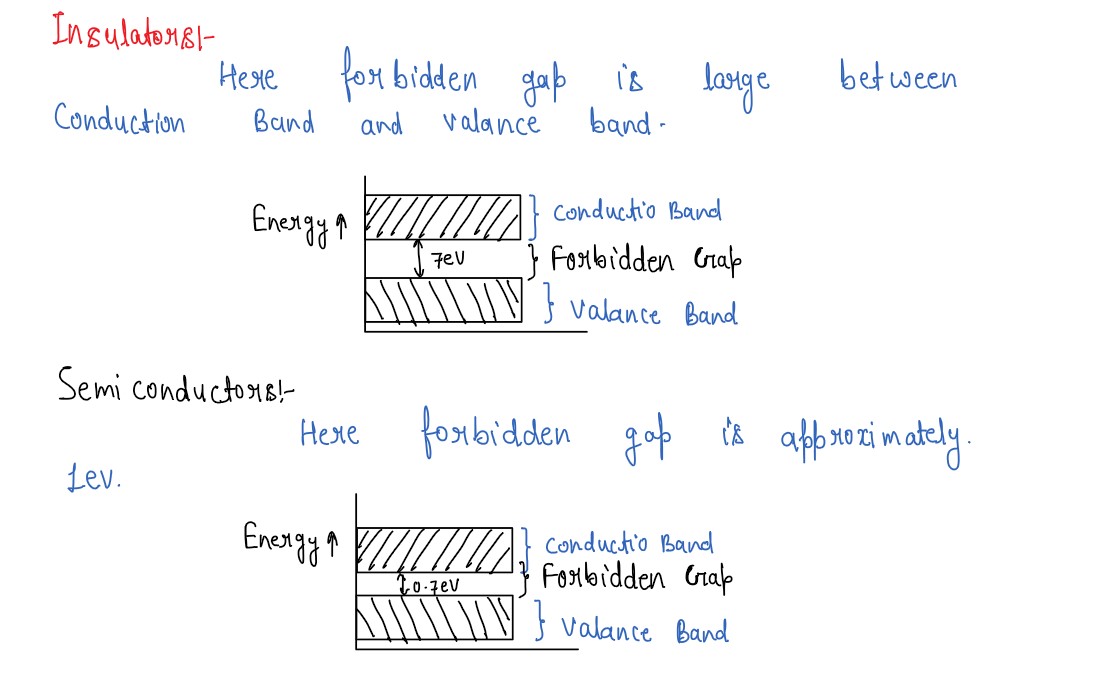 Insulators!-
Here forbidden gap is large between
Conduction Band and valance band.
Energy ↑
} Conductio Band
7eV
} Forbidden Gap
} Valance Band
Semi conductors!-
Here forbidden gap is approximately.
1ev.
Energy ↑
} Conductio Band
0.7eV
} Forbidden Gap
} Valance Band